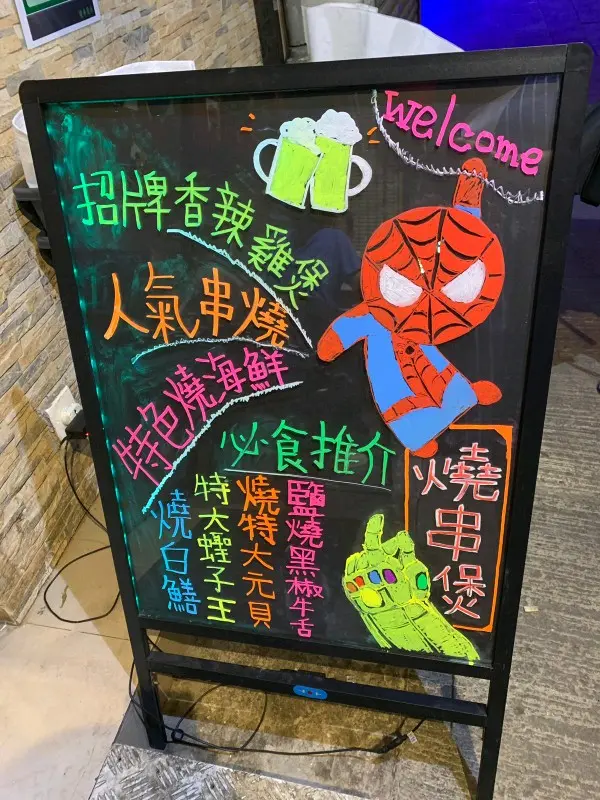 welcome
招牌香辣雞煲
人氣串燒
特色燒海鮮
必食推介
鹽燒黑椒牛舌
燒特大元貝
特大蟶子王
燒白鱔
燒串煲